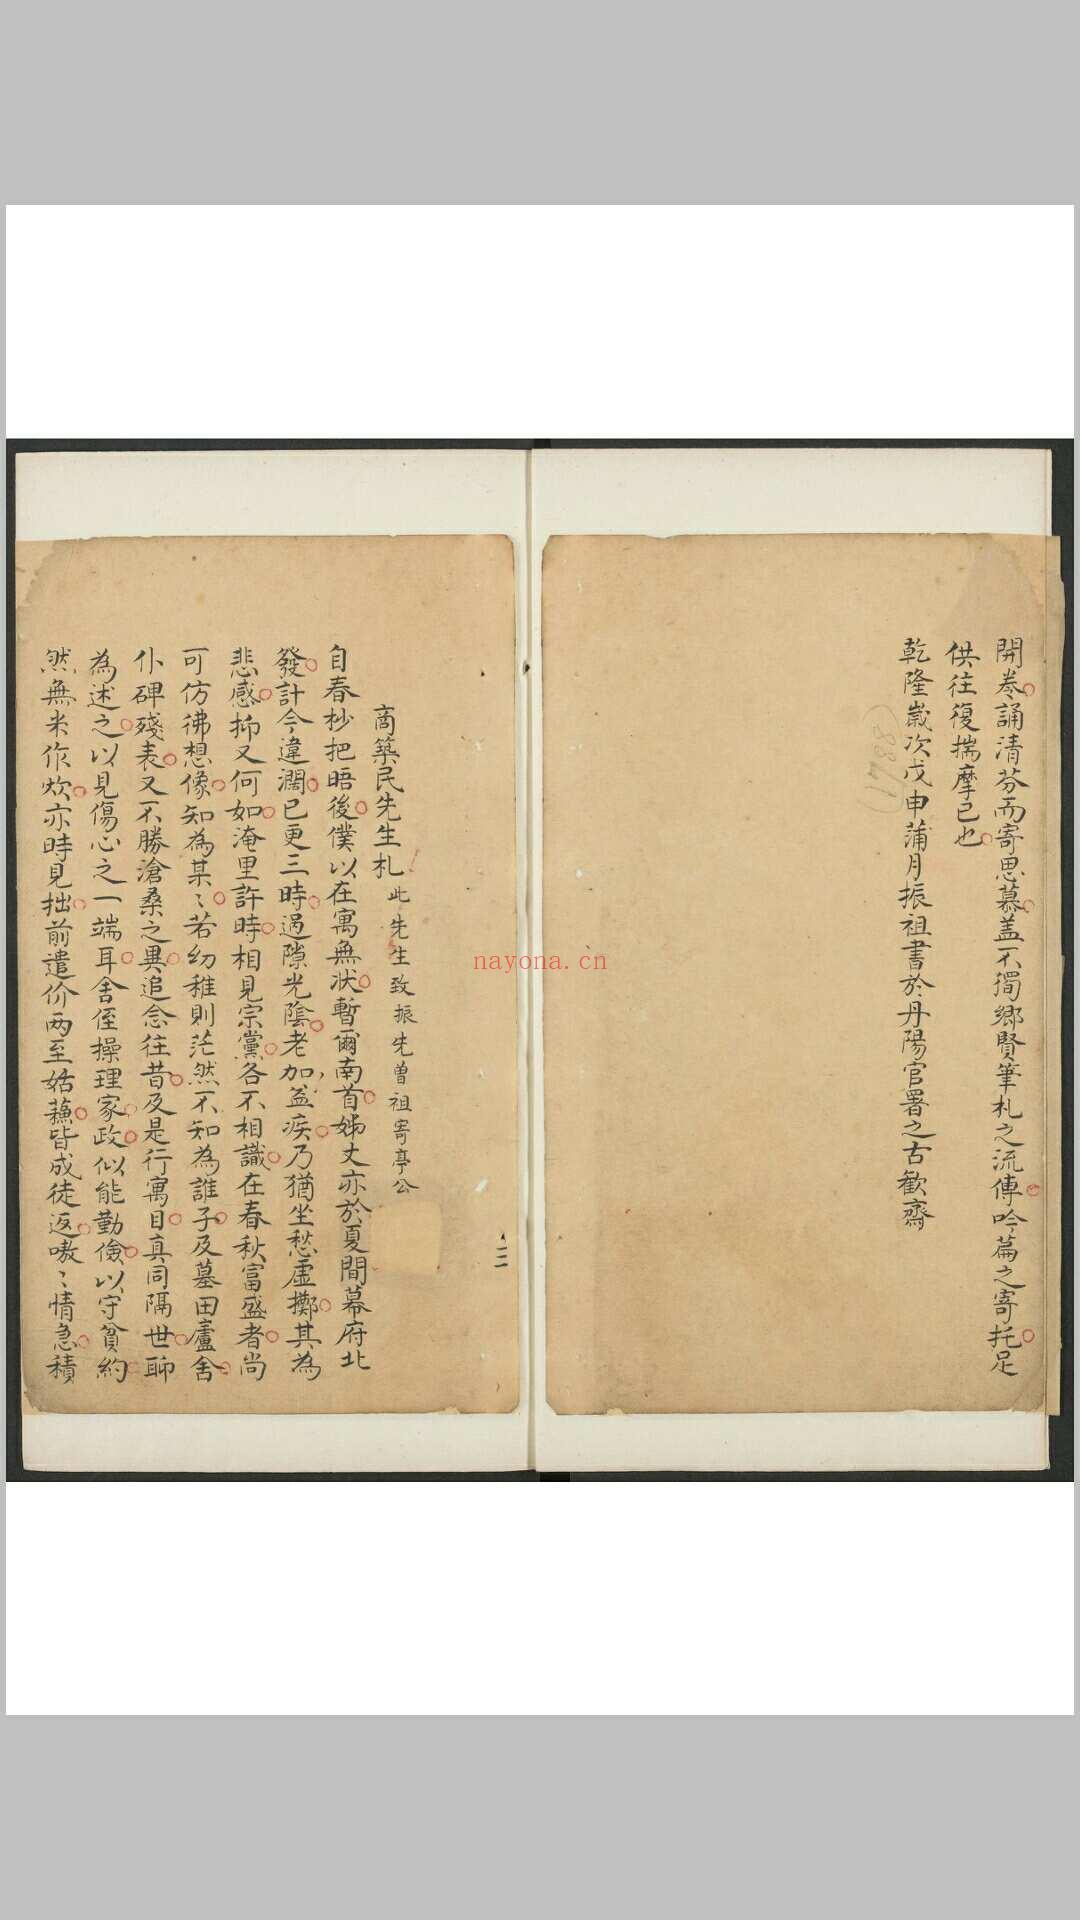 開卷誦清芬而寄思慕盖不獨鄉賢筆札之流傳吟篇之寄托足
供往復揣摩已也
乾隆歲次戊申蒲月振祖書於丹陽官署之古歡齋
商築民先生札 此先生致振先曾祖寄亭公
自春杪把晤後僕以在寓無狀暫爾南首姊丈亦於夏間幕府北
發計今違濶已更三時過隙光陰老加益疾乃猶坐愁虛擲其為
悲感抑又何如淹里許時相見宗黨各不相識在春秋富盛者尚
可仿彿想像知為某〻若幼稚則茫然不知為誰子及墓田廬舍
仆碑殘表又不勝滄桑之異追念往昔及是行寓目真同隔世聊
為述之以見傷心之一端耳舍侄操理家政似能勤儉以守貧約
然無米作炊亦時見拙前遣价两至姑蘓皆成徒返嗷〻情急積
二
nayona.cn